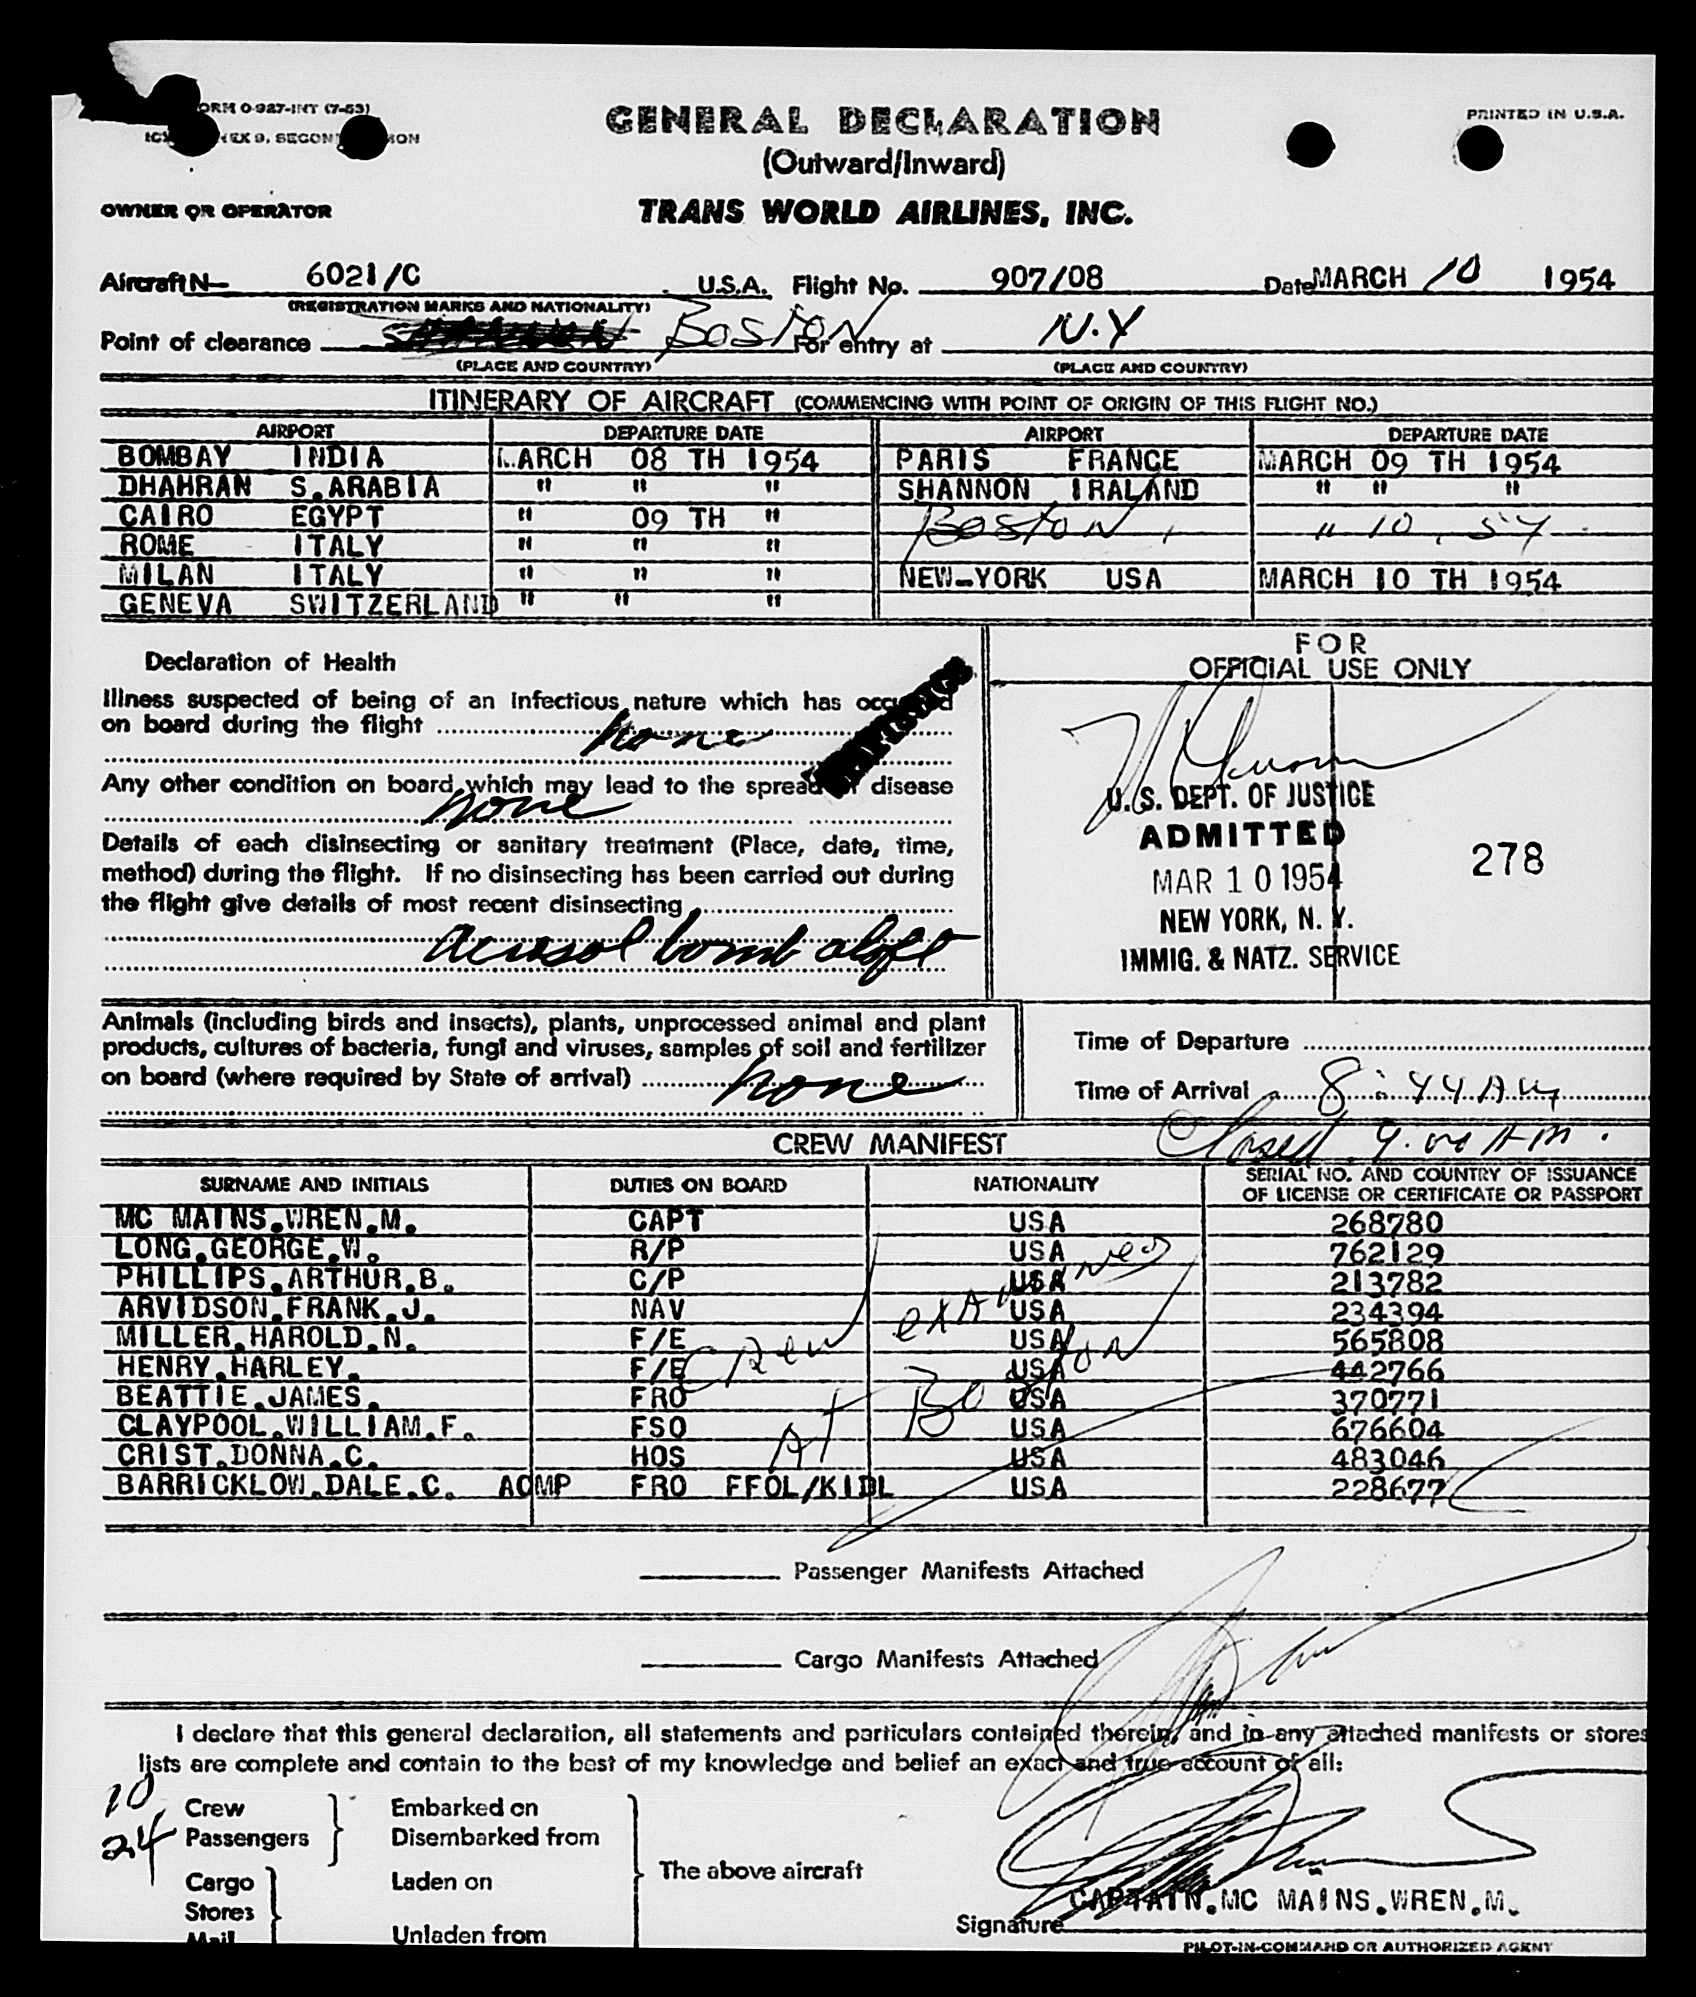 FORM O-927-INT (7-53)
GENERAL DECLARATION
PRINTED IN U.S.A.
EX 9, SECON
(Outward/Inward)
OWNER OR OPERATOR
TRANS WORLD AIRLINES, INC.
Aircraft N— 6021/C U.S.A. Flight No. 907/08 Date MARCH 10 1954
(REGISTRATION MARKS AND NATIONALITY)
Point of clearance Boston For entry at N.Y
(PLACE AND COUNTRY) (PLACE AND COUNTRY)
ITINERARY OF AIRCRAFT (COMMENCING WITH POINT OF ORIGIN OF THIS FLIGHT NO.)
AIRPORT DEPARTURE DATE AIRPORT DEPARTURE DATE
BOMBAY INDIA MARCH 08 TH 1954 PARIS FRANCE MARCH 09 TH 1954
DHAHRAN S.ARABIA " " " SHANNON IRALAND " " "
CAIRO EGYPT " 09 TH " Boston, " 10, 54
ROME ITALY " " "
MILAN ITALY " " " NEW-YORK USA MARCH 10 TH 1954
GENEVA SWITZERLAND " " "
FOR
OFFICIAL USE ONLY
Declaration of Health
Illness suspected of being of an infectious nature which has occurred
on board during the flight none
Any other condition on board which may lead to the spread of disease
none
Details of each disinsecting or sanitary treatment (Place, date, time,
method) during the flight. If no disinsecting has been carried out during
the flight give details of most recent disinsecting
aerosol bomb aloft
U.S. DEPT. OF JUSTICE
ADMITTED
278
MAR 10 1954
NEW YORK, N. Y.
IMMIG. & NATZ. SERVICE
Animals (including birds and insects), plants, unprocessed animal and plant
products, cultures of bacteria, fungi and viruses, samples of soil and fertilizer
on board (where required by State of arrival) none
Time of Departure
Time of Arrival 8:44 AM
Closed 9:00 A.M.
CREW MANIFEST
SURNAME AND INITIALS DUTIES ON BOARD NATIONALITY SERIAL NO. AND COUNTRY OF ISSUANCE
OF LICENSE OR CERTIFICATE OR PASSPORT
MC MAINS.WREN.M. CAPT USA 268780
LONG.GEORGE.W. R/P USA 762129
PHILLIPS.ARTHUR.B. C/P USA 213782
ARVIDSON.FRANK.J. NAV USA 234394
MILLER.HAROLD.N. F/E USA 565808
HENRY.HARLEY. F/E USA 442766
BEATTIE.JAMES. FRO USA 370771
CLAYPOOL.WILLIAM.F. FSO USA 676604
CRIST.DONNA.C. HOS USA 483046
BARRICKLOW.DALE.C. ACMP FRO FFOL/KIDL USA 228677
Crew examined
At Boston
Passenger Manifests Attached
Cargo Manifests Attached
I declare that this general declaration, all statements and particulars contained therein, and in any attached manifests or stores
lists are complete and contain to the best of my knowledge and belief an exact and true account of all:
10 Crew Embarked on
24 Passengers Disembarked from
The above aircraft
Cargo Laden on
Stores
Mail Unladen from
CAPTAIN.MC MAINS.WREN.M.
Signature
PILOT-IN-COMMAND OR AUTHORIZED AGENT